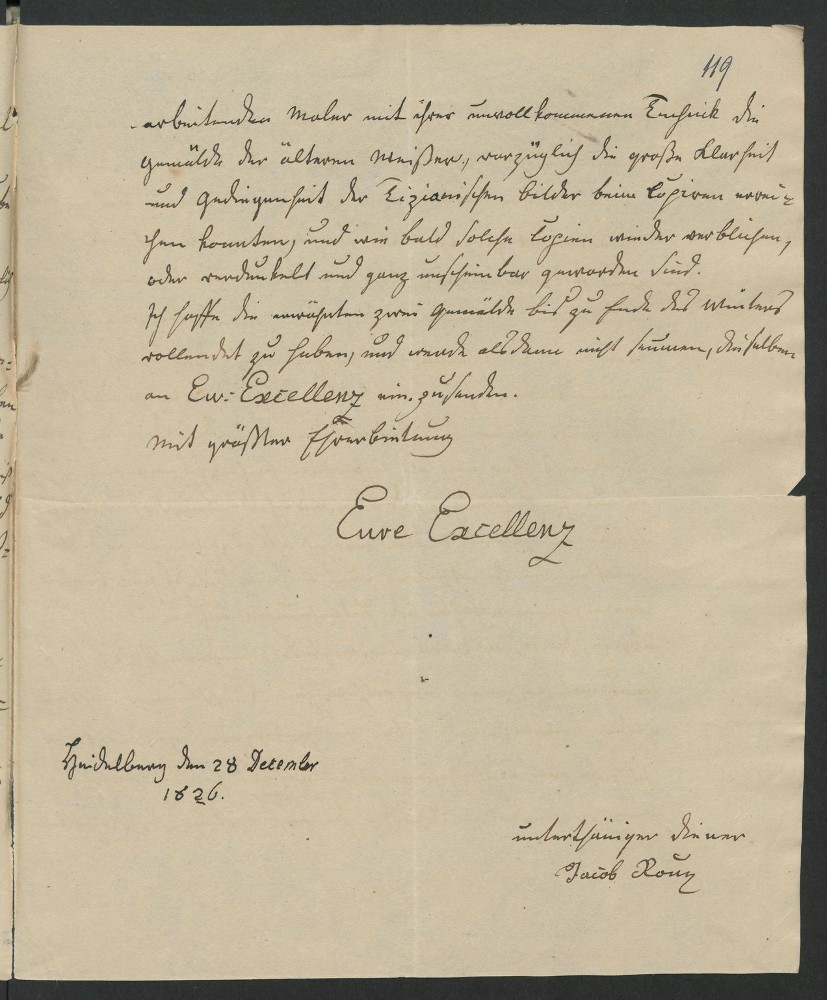 119
arbeitenden Maler mit ihrer unvollkommenen Technick die
Gemälde der älteren Meister, vorzüglich die große Klarheit
und Gediegenheit der Tizianischen Bilder beim Copiren errei-
chen konnten, und wie bald solche Copien wieder verblichen,
oder verdunkelt und ganz unscheinbar geworden sind.
Ich hoffe die erwähnten zwei Gemälde bis zu Ende des Winters
vollendet zu haben, und werde alsdann nicht säumen, dieselben
an Ew: Excellenz einzusenden.
Mit größter Ehrerbietung
Eure Excellenz
Heidelberg den 28 December
1826.
unterthäniger Diener
Jacob Roux